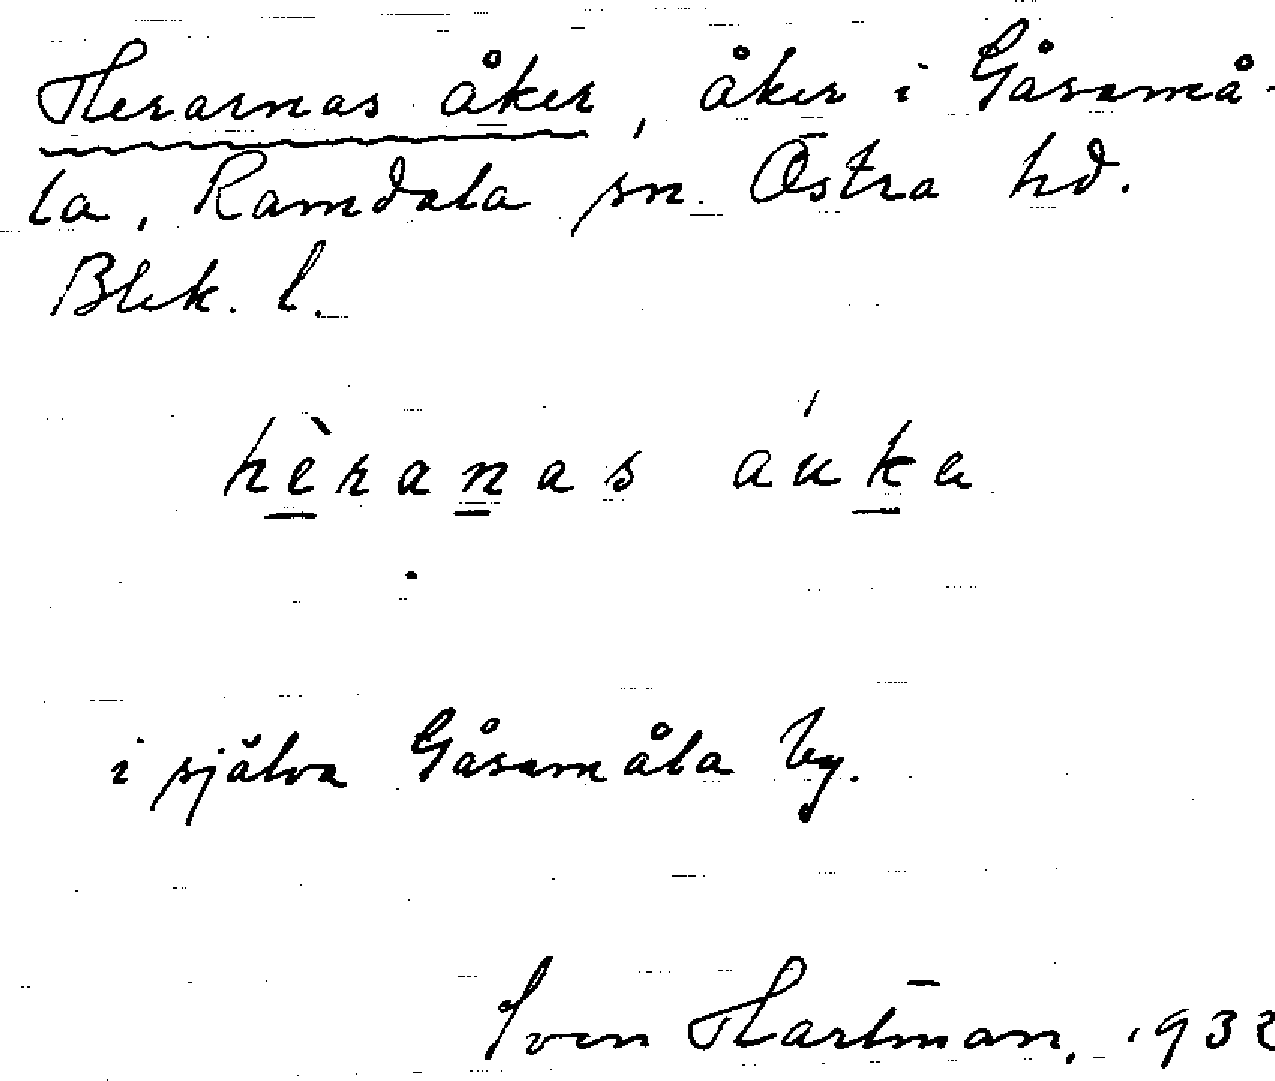 Herarnas åker, åker i Gåsamå-
la, Ramdala sn. Östra hd.
Blek. l.
hèranas áuka
i själva Gåsamåla by.
Sven Hartman, 1932